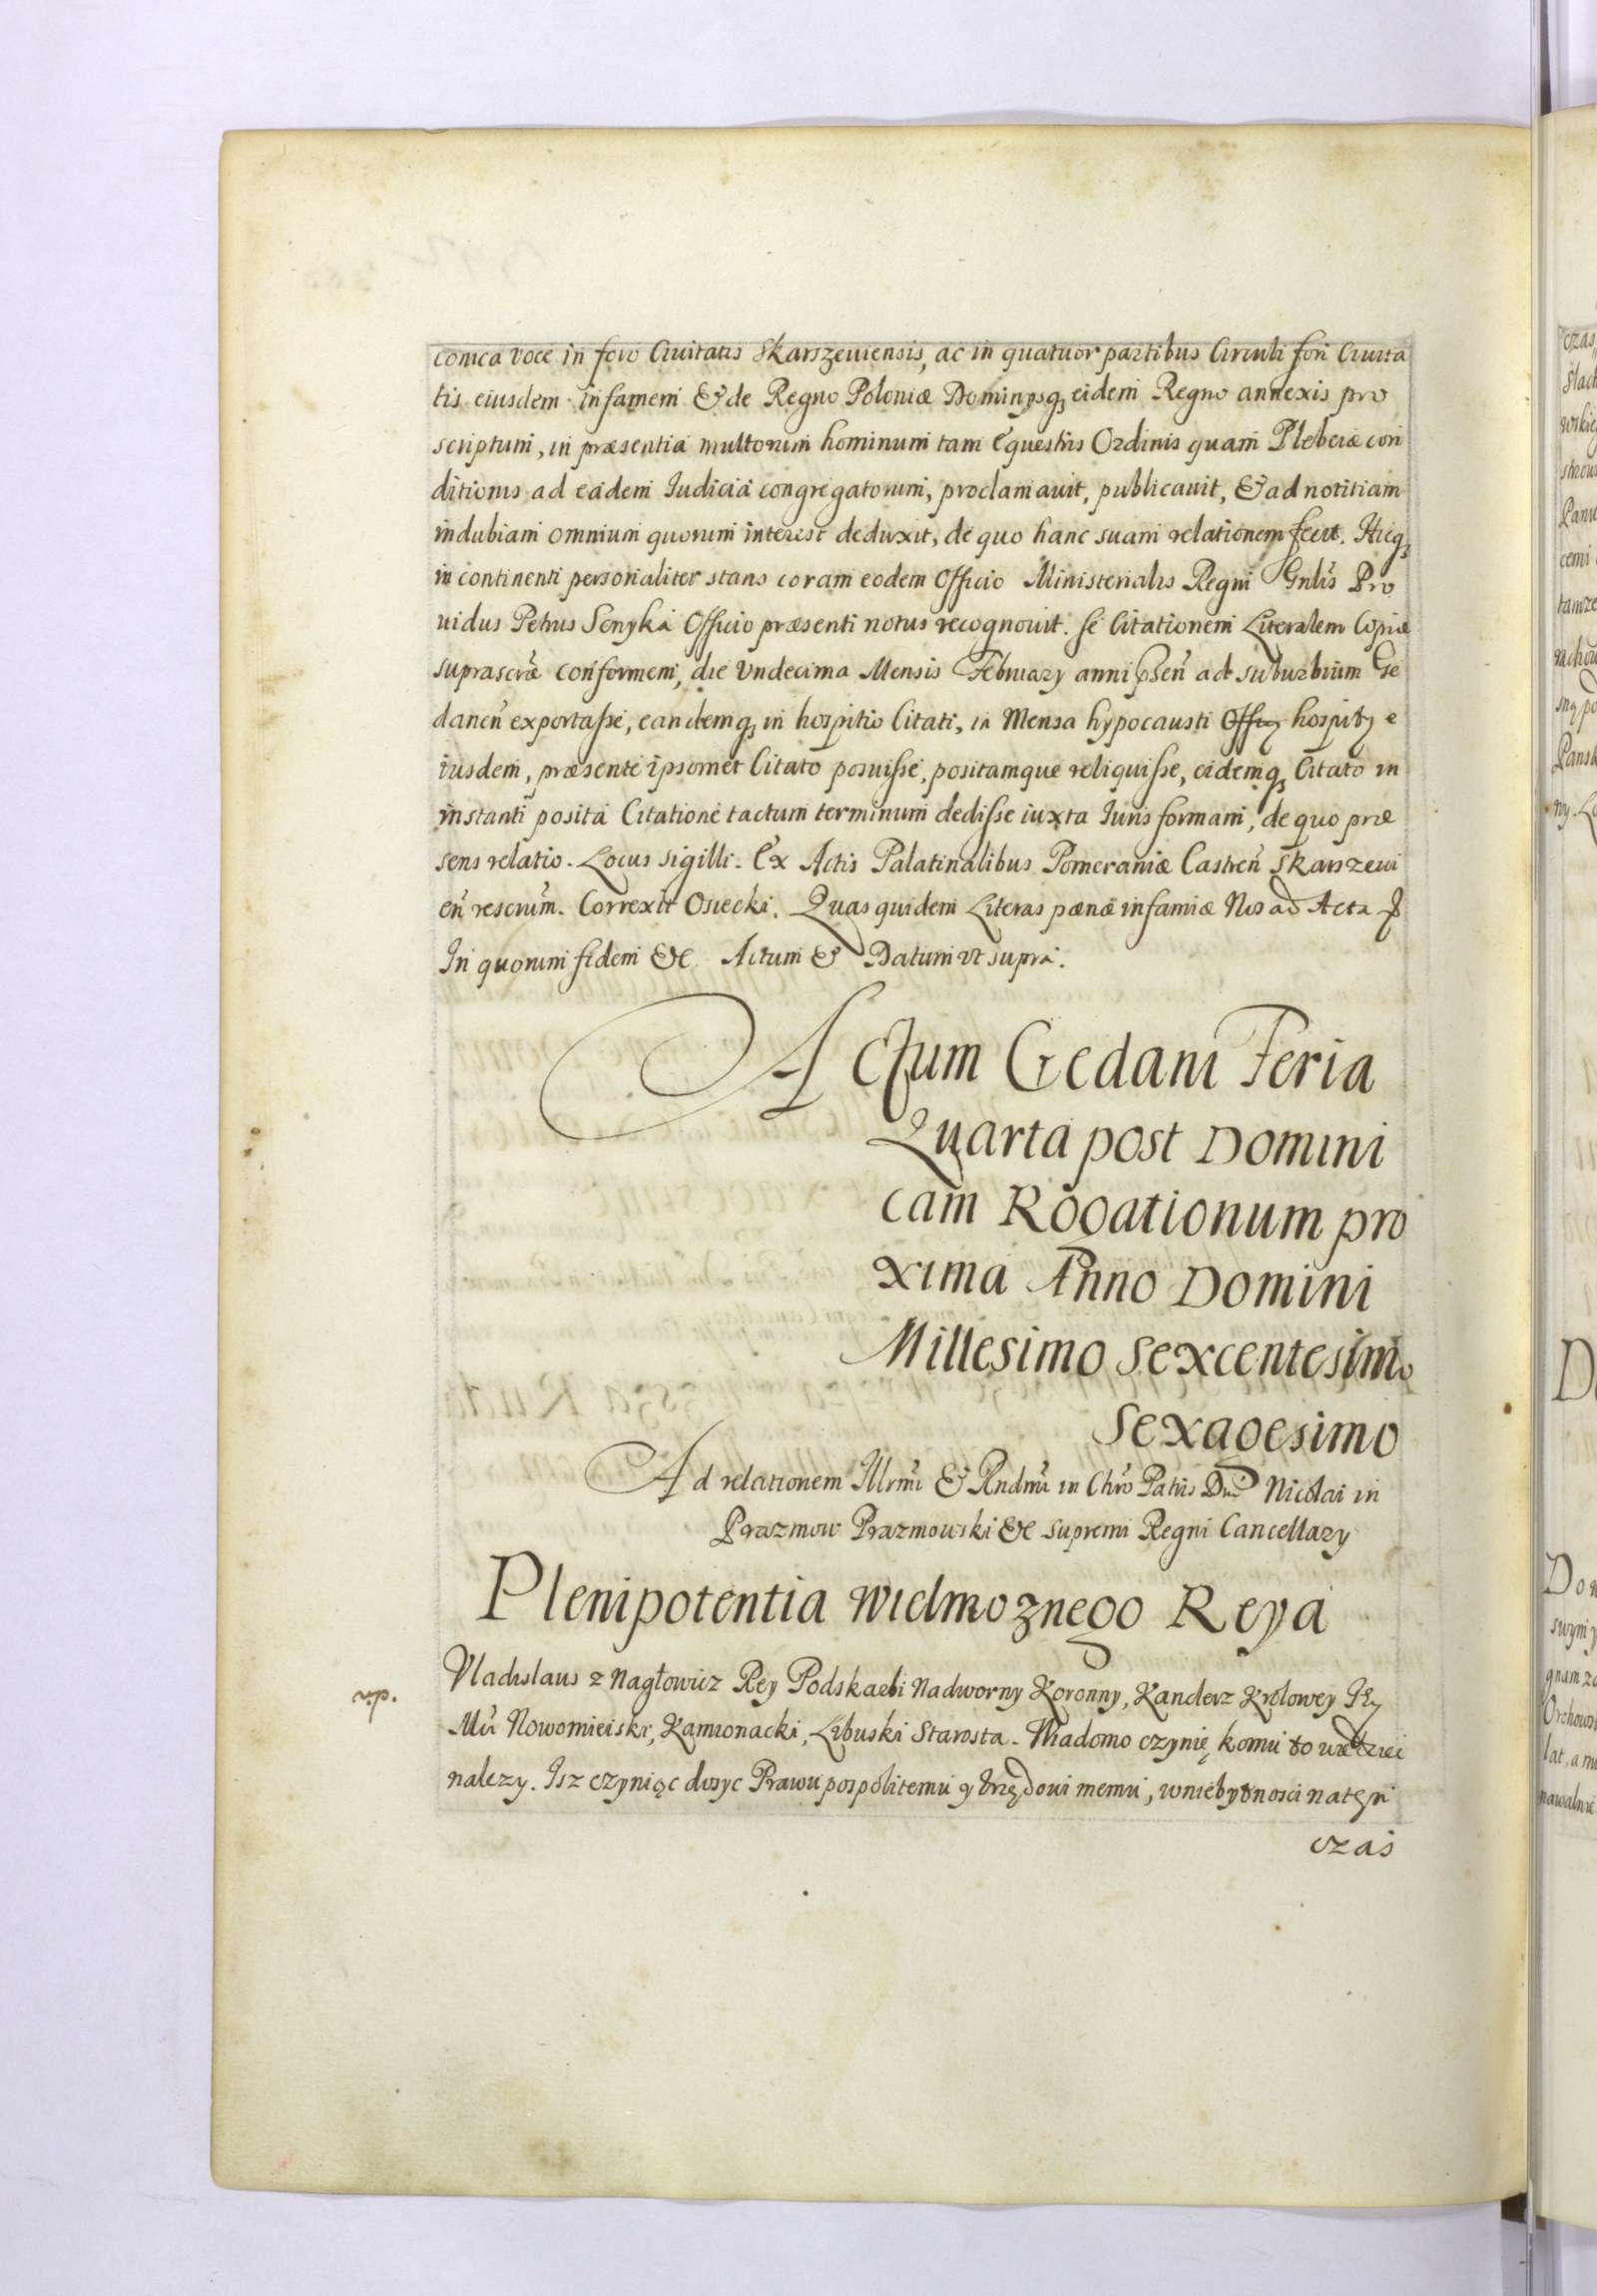 conica voce in foro Ciuitatis Skarszeuiensis, ac in quatuor partibus Circuli fori Ciuita
tis eiusdem infamem & de Regno Poloniæ Dominysq; eidem Regno annexis pro
scriptum, in præsentia multorum hominum tam Equestris Ordinis quam Plebeiæ con
ditionis ad eadem Iudicia congregatorum, proclamauit, publicauit, & ad notitiam
indubiam omnium quorum interest deduxit, de quo hanc suam relationem fecit. Hicq;
in continenti personaliter stans coram eodem Officio Ministerialis Regni Gnlis Pro
uidus Petrus Senyka Officio præsenti notus recognouit. se Citationem Literalem Copiæ
suprascræ conformem, die Vndecima Mensis February anni psen ad suburbium Ge
danen exportasse, eandemq; in hospitio Citati, in Mensa hypocausti Officy hospity e
iusdem, præsente ipsomet Citato posuisse, positamque reliquisse, eidemq; Citato in
instanti posita Citatione tactum terminum dedisse iuxta Iuris formam, de quo præ
sens relatio. Locus sigilli. Ex Actis Palatinalibus Pomeraniæ Castren Skarszeui
en rescrum. Correxit Osiecki. Quas quidem Literas pænæ infamiæ Nos ad Acta
In quorum fidem &c Actum & Datum vt supra.
Actum Gedani Feria
Quarta post Domini
cam Rogationum pro
xima Anno Domini
Millesimo Sexcentesimo
Sexagesimo
Ad relationem Illrmi & Rndmi in Chro Patris Dni Nicolai in
Prazmow Prazmowski &c supremi Regni Cancellary
Plenipotentia Wielmoznego Reya
Vladislaus z Nagłowicz Rey Podskarbi Nadworny Koronny, Kanclerz Krolowey IEy
Mci Nowomieiski, Kamionacki, Libuski Starosta. Wiadomo czynię komu to wiedziec
nalezy. Isz czyniąc dosyc Prawu pospolitemu y Vrzędowi memu, wniebytnosci natęn
czas